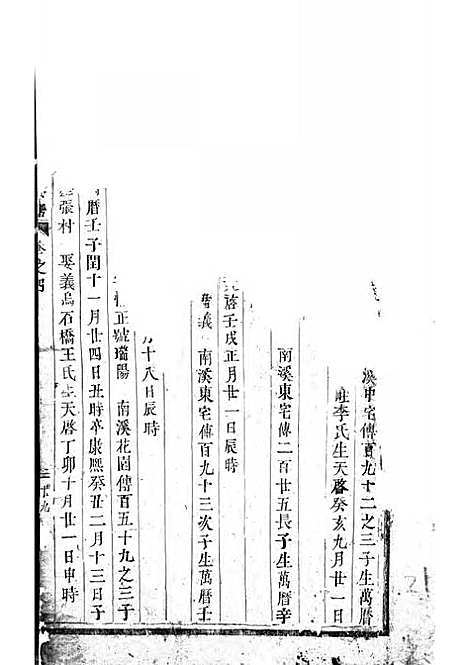 溪中宅傳百九十二之三子生萬曆
娶李氏生天啓癸亥九月廿一日
南溪東宅傳二百廿五長子生萬曆辛
啓壬戌正月廿一日辰時
義 南溪東宅傳百九十三次子生萬曆壬
十八日辰時
正號瑞陽 南溪花園傳百五十九之三子
曆壬子閏十一月廿四日丑時卒康熙癸丑二月十三日子
張村 娶義烏石橋王氏生天啓丁卯十月廿一日申時
卷之四 十九